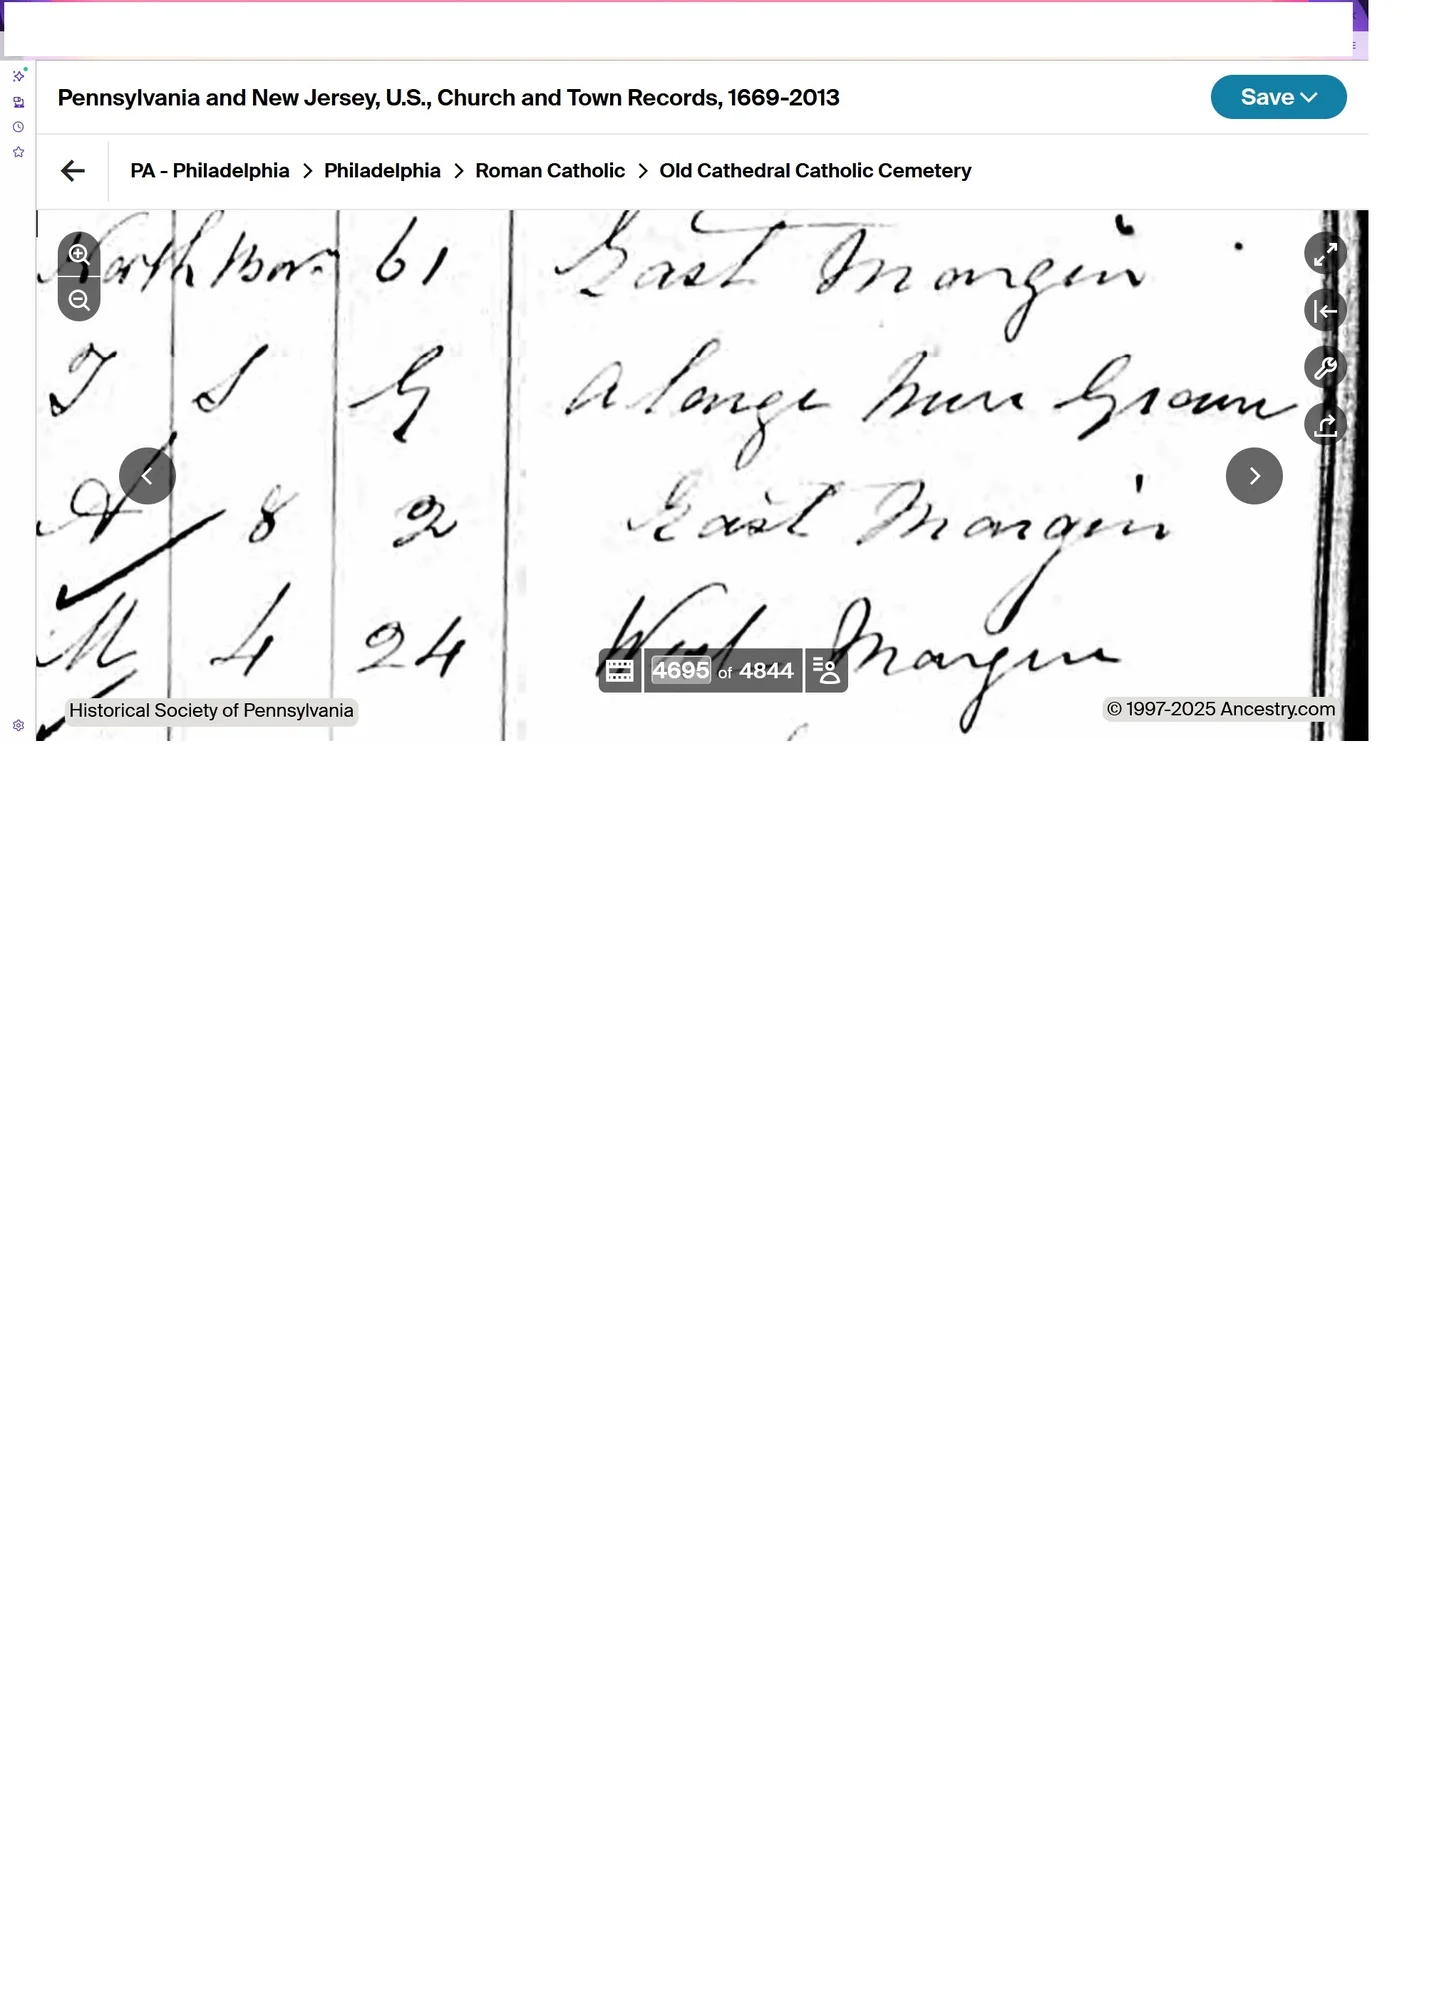 Pennsylvania and New Jersey, U.S., Church and Town Records, 1669-2013
Save
PA - Philadelphia > Philadelphia > Roman Catholic > Old Cathedral Catholic Cemetery
North Bor. 61 East Margin
I S G A large New Grave
A 8 2 East Margin
M 4 24 West Margin
4695 of 4844
Historical Society of Pennsylvania
© 1997-2025 Ancestry.com